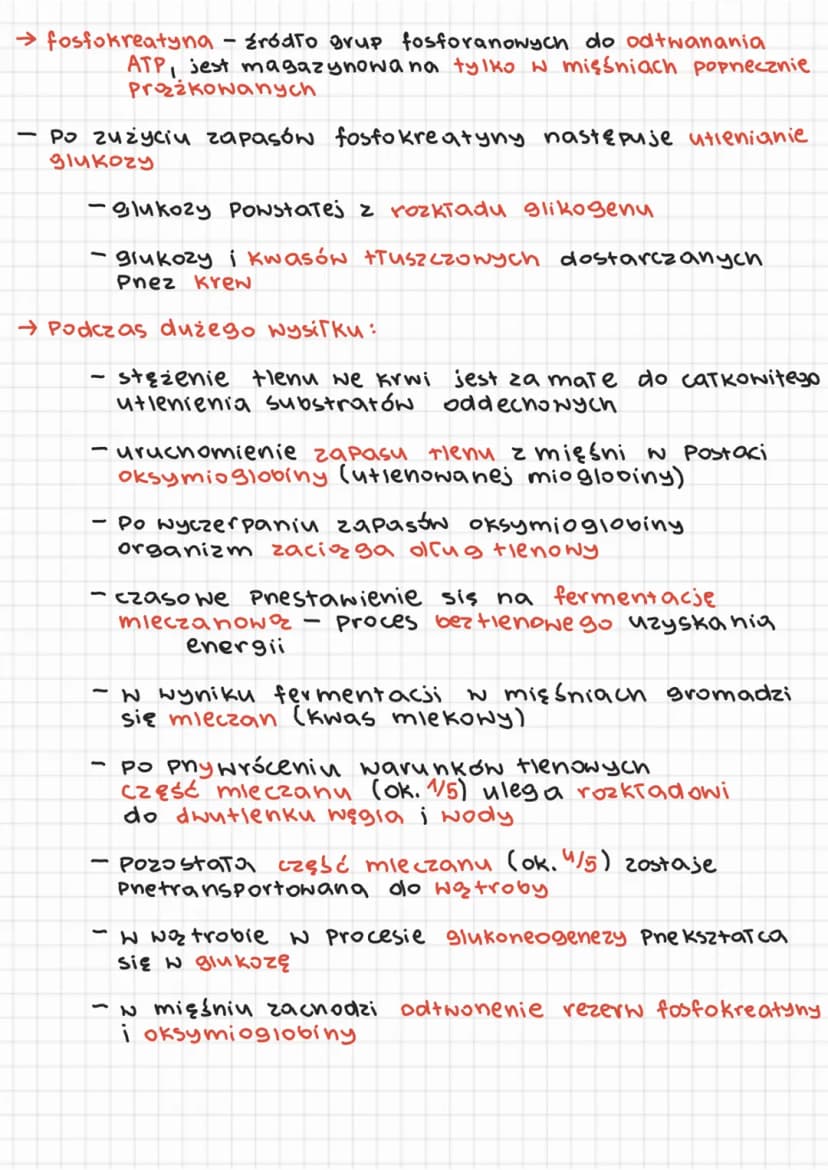 → fosfokreatyna – źródło grup fosforanowych do odtwarzania
ATP, jest magazynowana tylko w mięśniach poprzecznie
prążkowanych
– Po zużyciu zapasów fosfokreatyny następuje utlenianie
glukozy
– glukozy powstałej z rozkładu glikogenu
– glukozy i kwasów tłuszczowych dostarczanych
przez krew
→ Podczas dużego wysiłku:
– stężenie tlenu we krwi jest za małe do całkowitego
utlenienia substratów oddechowych
– uruchomienie zapasu tlenu z mięśni w postaci
oksymioglobiny (utlenowanej mioglobiny)
– Po wyczerpaniu zapasów oksymioglobiny
organizm zaciąga dług tlenowy
– czasowe przestawienie się na fermentację
mleczanową – proces beztlenowego uzyskania
energii
– w wyniku fermentacji w mięśniach gromadzi
się mleczan (kwas mlekowy)
– po przywróceniu warunków tlenowych
część mleczanu (ok. 1/5) ulega rozkładowi
do dwutlenku węgla i wody
– pozostała część mleczanu (ok. 4/5) zostaje
przetransportowana do wątroby
– w wątrobie w procesie glukoneogenezy przekształca
się w glukozę
– w mięśniu zachodzi odtworzenie rezerw fosfokreatyny
i oksymioglobiny